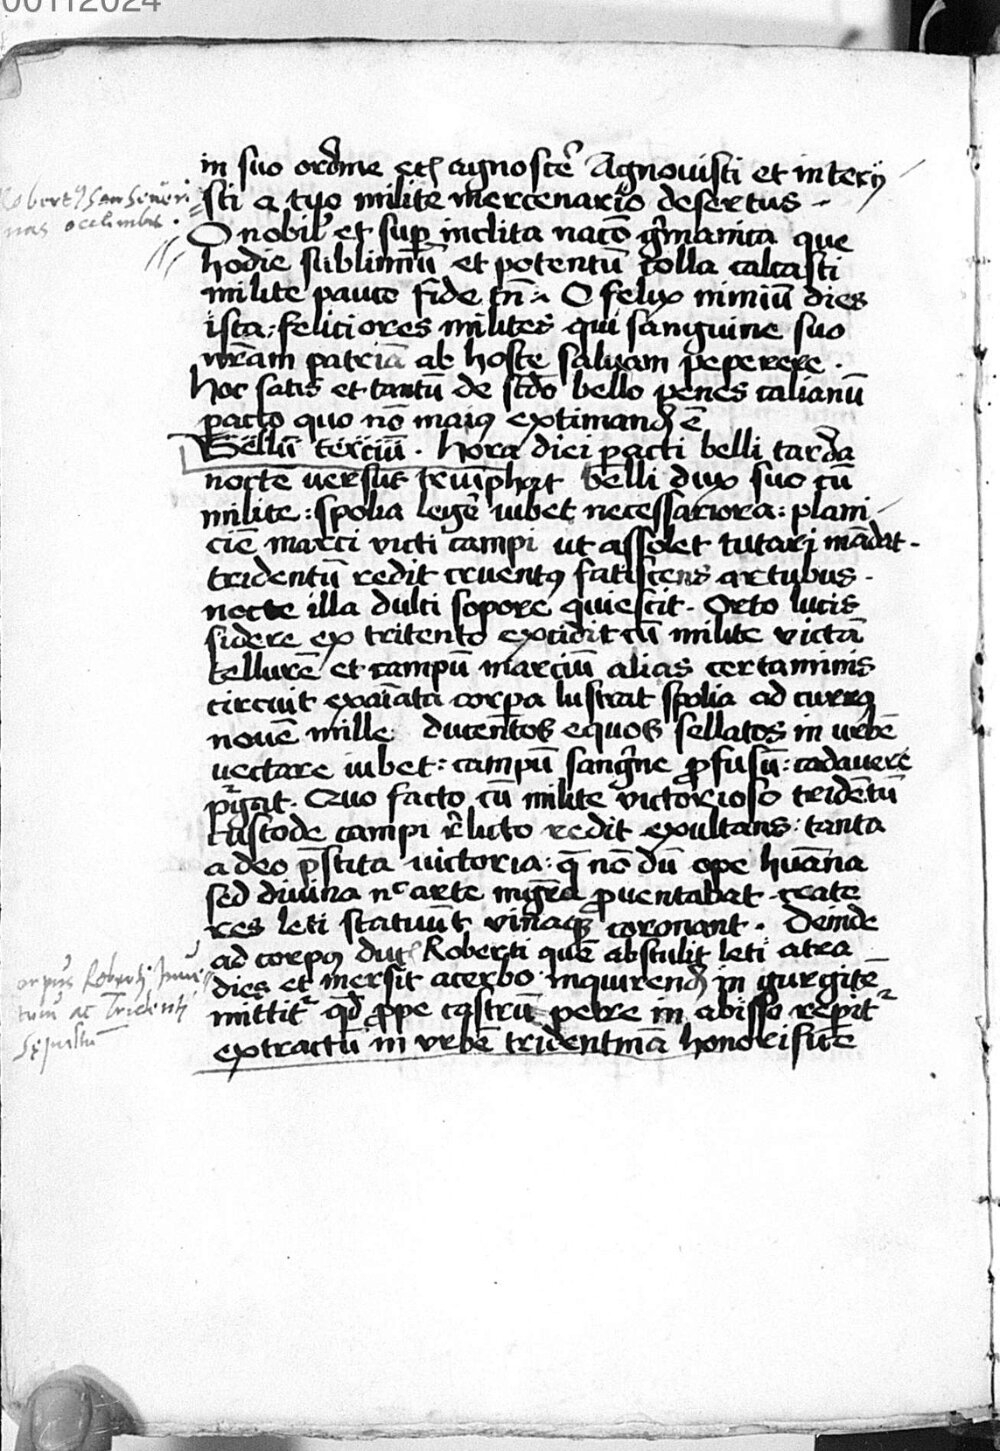 00112024
in suo ordine etc̄ agnoscē Agnovisti et interij
sti a tuo milite mercenario desertus
Robertꝯ San Seueri
nas occumbit.
O nobil' et sup inclita nacō gr̄manica que
hodie sublimiū et potentū colla calcasti
milite pauco fide tn̄ O felix nimiū dies
ista: feliciores milites qui sanguine suo
nr̄am patriā ab hoste saluam peperere.
hoc satis et tantū de scd̄o bello penes calianū
pacto quo nō maiꝯ extimand̄ ē
Bellū terciū. Hora diei pacti belli tarda
nocte versus triumphat belli dux suo cū
milite: spolia legē iubet necessariora: plani
ciē marci victi campi ut assolet tutari mādat.
tridentū redit cruentꝯ fatiscens artubus.
nocte illa dulci sopore quiescit. Orto lucis
sidere ex tritento excidit cū milite victā
tellurē et campū marciū alias certaminis
circuit exaīata corpa lustrat spolia ad currꝯ
nouē mille ducentos equos sellatos in urbē
uectare iubet: campū sangīne ꝓfusū: cadauere
pīgat. Quo facto cū milite victorioso tridētū
custode campi r̄licto redit exultans: tanta
a deo p̄stita victoria: q̄ nō dū ope huāna
sed diuina nc arte ꝓuentabat
res leti statuūt vinaqꝫ coronant. Deinde
ad corpꝯ duc Roberti quē abstulit leti atra
dies et mersit acerbo inquirend̄ in gurgitē
orpus Roberti Inuē
tum ac Tridenti
sepultū
mittitr qd̄ ꝓpe castrū petre in abisso reperitr
extractū in vrbē tridentinā honorifice